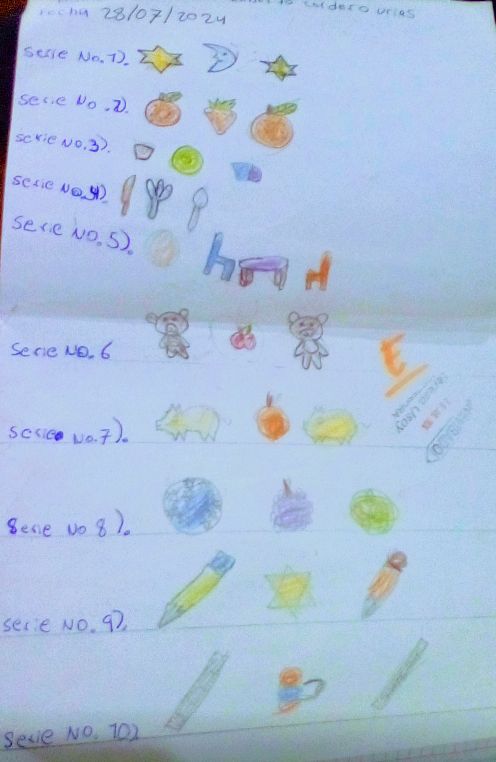 Fecha 28/07/2024
Serie No. 1).
Serie No. 2).
Serie No. 3).
Serie No. 4).
Serie No. 5).
Serie No. 6
Serie No. 7).
Serie No 8).
Serie No. 9).
Serie No. 10)